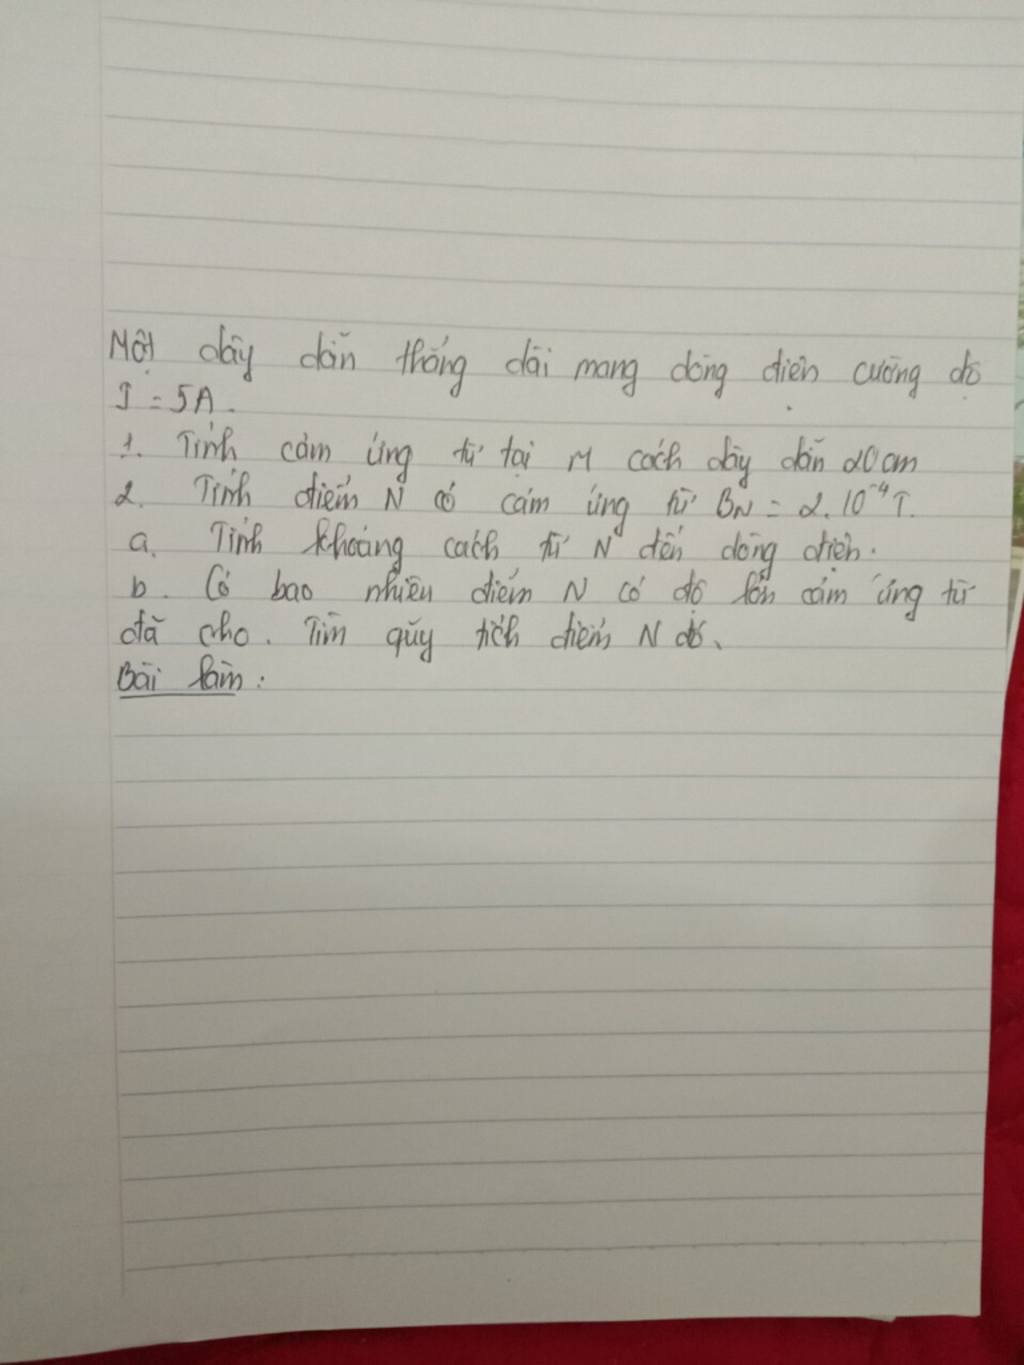 Một dây dẫn thẳng dài mang dòng điện cường độ
I = 5A.
1. Tính cảm ứng từ tại M cách dây dẫn 20cm
2. Tính điểm N có cảm ứng từ BN = 2.10⁻⁴T.
a. Tính khoảng cách từ N đến dòng điện.
b. Có bao nhiêu điểm N có độ lớn cảm ứng từ
đã cho. Tìm qũy tích điểm N đó.
Bài làm: